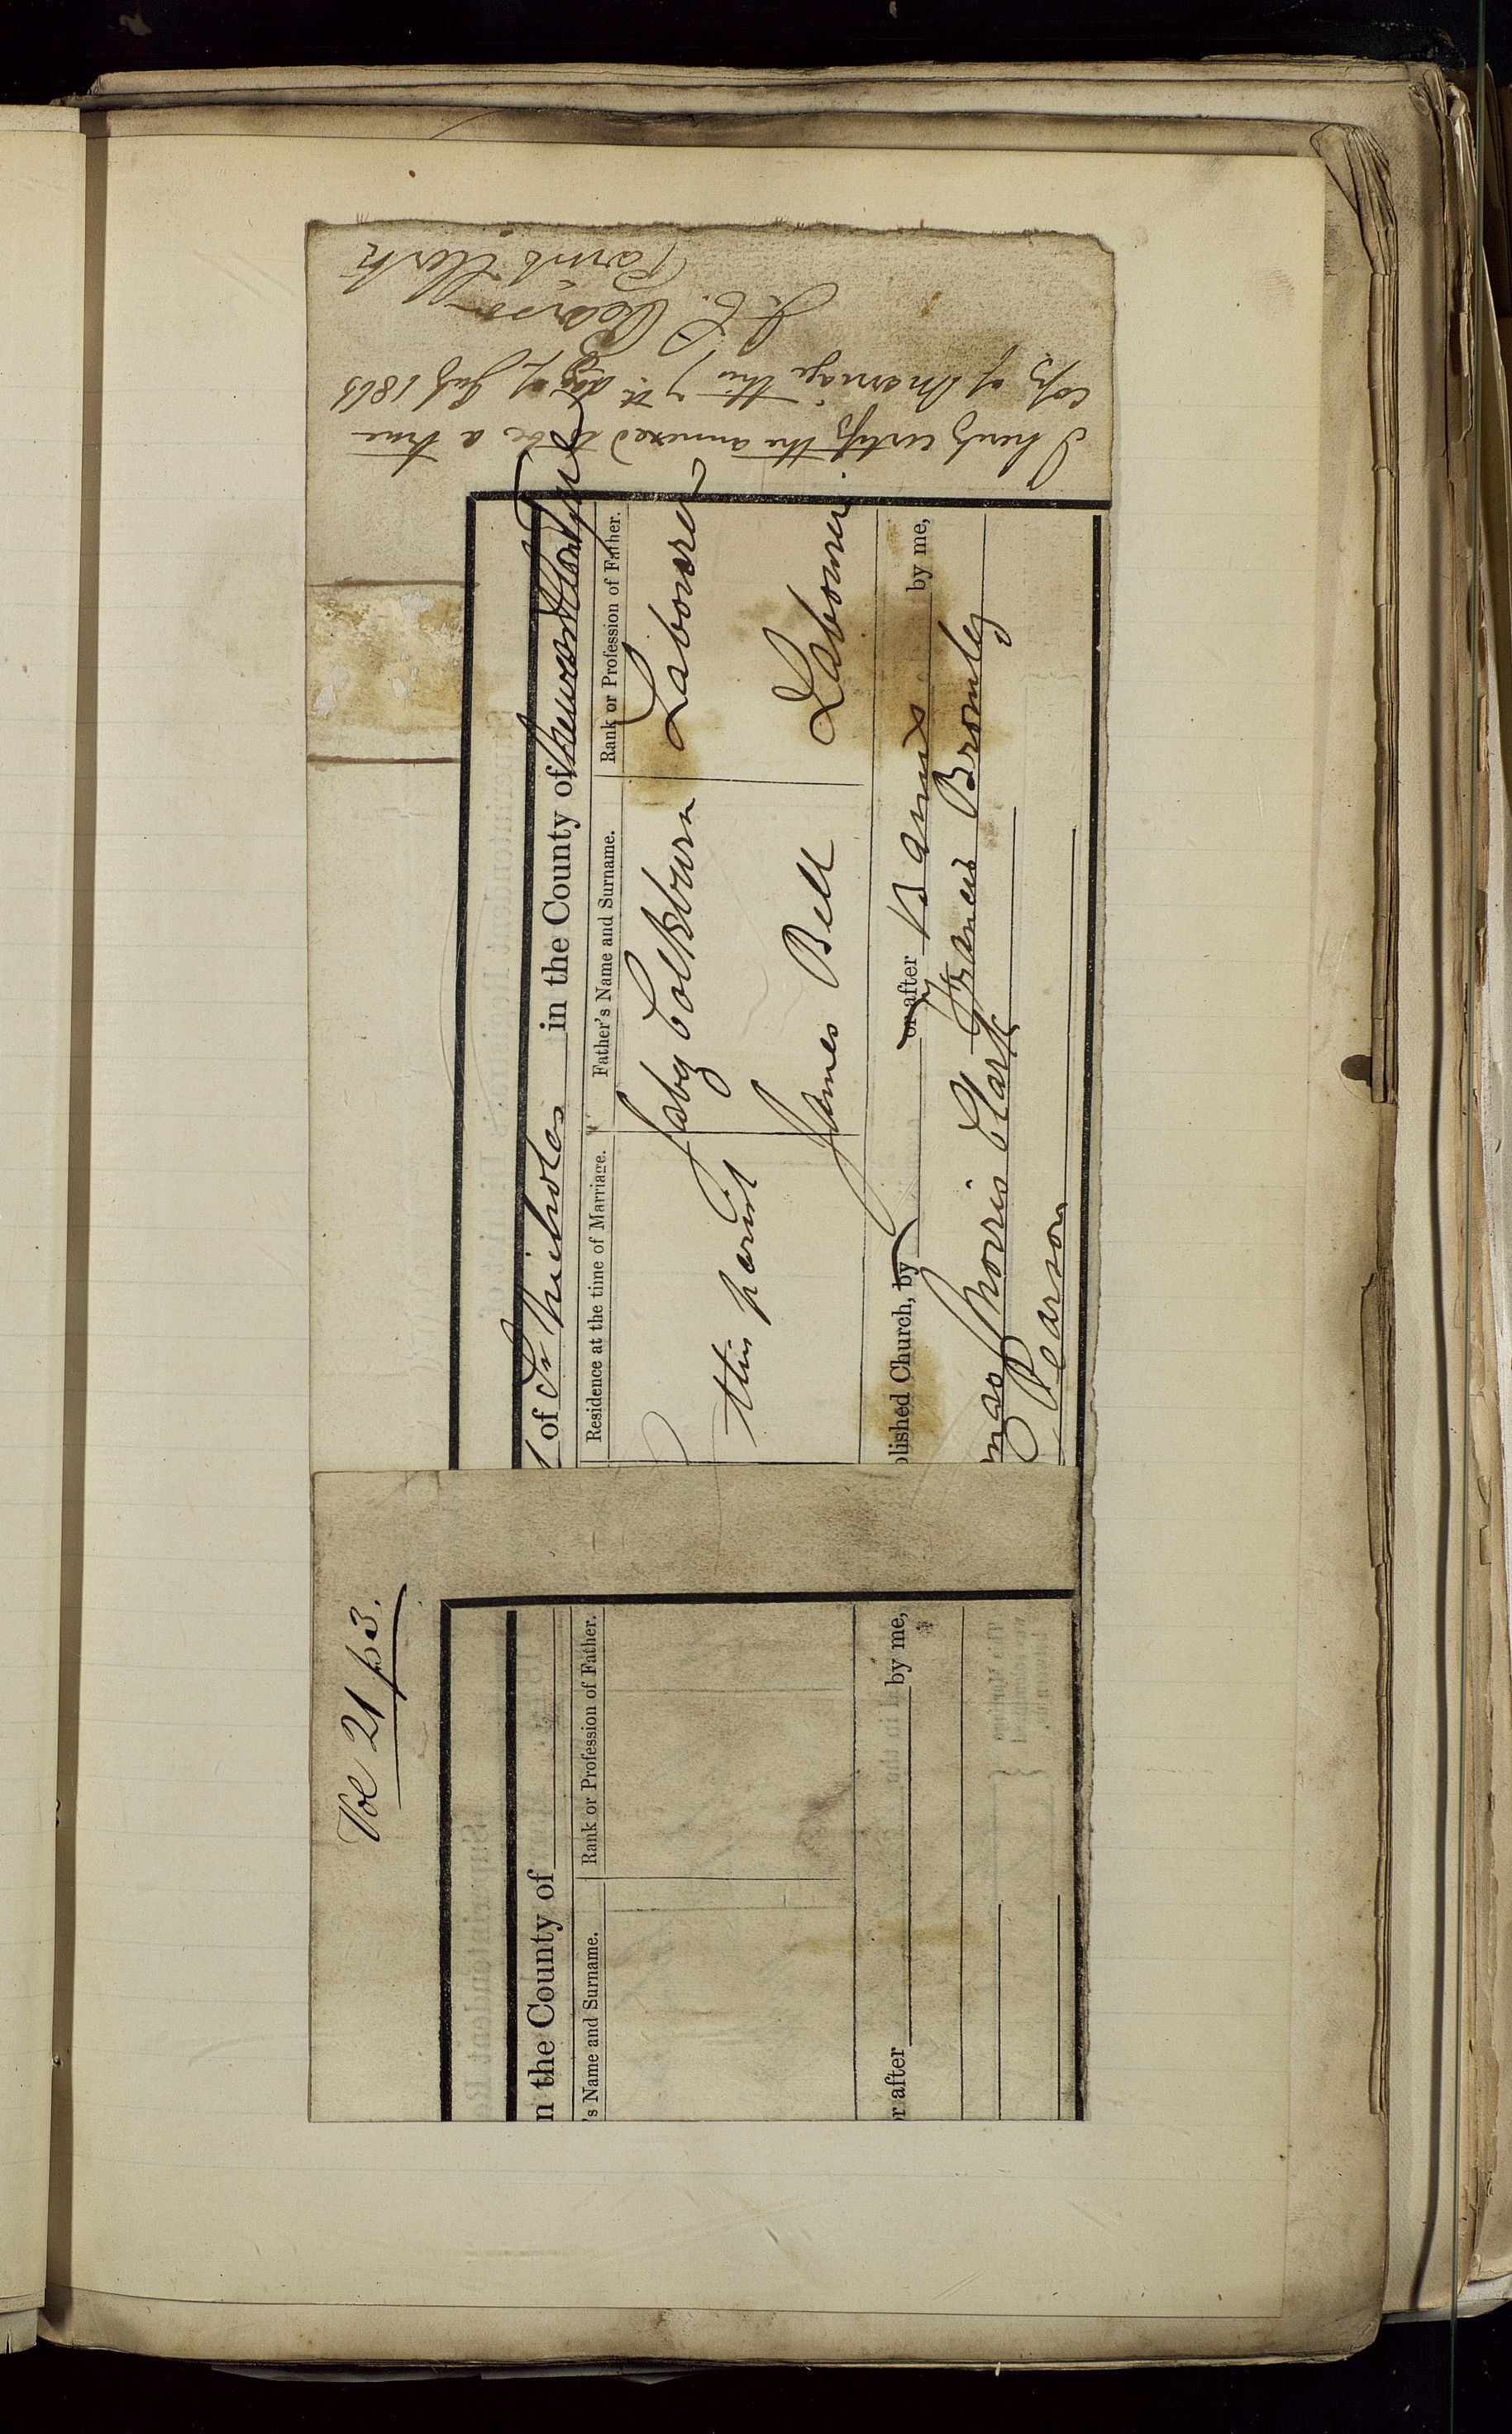 Vol 21 p3.
of St Nicholas in the County of Newcastle on Tyne
Residence at the time of Marriage. Father's Name and Surname. Rank or Profession of Father.
this parish
Jaby Colkburn Labourer
James Bell Labourer
blished Church, by or after Banns by me,
Francis Bromley
mas Morris Clark
Pearson
I hereby certify the annexed to be a true
copy of Marriage this 7th day of July 1863
J. C. Pearson
Parish Clerk
n the County of
's Name and Surname. Rank or Profession of Father.
r after by me,